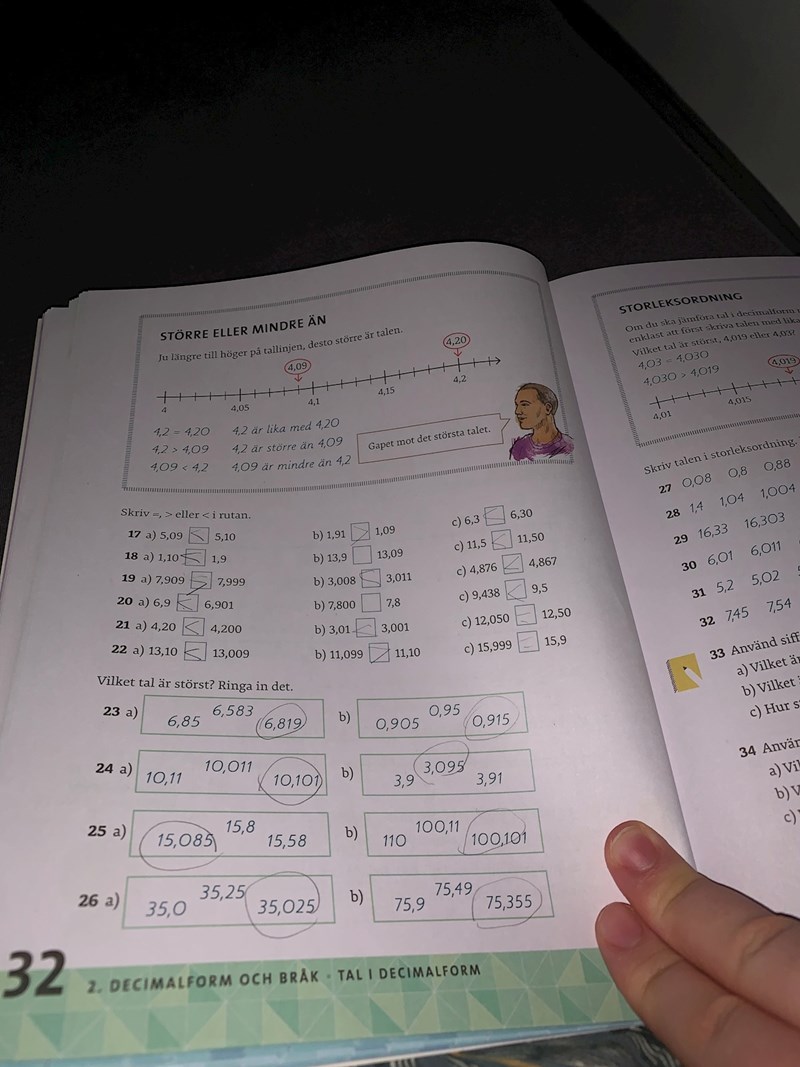 STÖRRE ELLER MINDRE ÄN
Ju längre till höger på tallinjen, desto större är talen.
4,09 4,20
4 4,05 4,1 4,15 4,2
4,2 = 4,20 4,2 är lika med 4,20
4,2 > 4,09 4,2 är större än 4,09
4,09 < 4,2 4,09 är mindre än 4,2
Gapet mot det största talet.
Skriv =, > eller < i rutan.
17 a) 5,09 < 5,10 b) 1,91 > 1,09 c) 6,3 < 6,30
18 a) 1,10 < 1,9 b) 13,9 13,09 c) 11,5 < 11,50
19 a) 7,909 7,999 b) 3,008 < 3,011 c) 4,876 < 4,867
20 a) 6,9 < 6,901 b) 7,800 7,8 c) 9,438 < 9,5
21 a) 4,20 < 4,200 b) 3,01 < 3,001 c) 12,050 12,50
22 a) 13,10 < 13,009 b) 11,099 > 11,10 c) 15,999 15,9
Vilket tal är störst? Ringa in det.
23 a) 6,85 6,583 6,819 b) 0,905 0,95 0,915
24 a) 10,11 10,011 10,101 b) 3,9 3,095 3,91
25 a) 15,085 15,8 15,58 b) 110 100,11 100,101
26 a) 35,0 35,25 35,025 b) 75,9 75,49 75,355
32 2. DECIMALFORM OCH BRÅK · TAL I DECIMALFORM
STORLEKSORDNING
Om du ska jämföra tal i decimalform
enklast att först skriva talen med lika
Vilket tal är störst, 4,019 eller 4,03?
4,03 = 4,030
4,030 > 4,019
4,019
4,01 4,015
Skriv talen i storleksordning.
27 0,08 0,8 0,88
28 1,4 1,04 1,004
29 16,33 16,303
30 6,01 6,011
31 5,2 5,02
32 7,45 7,54
33 Använd
a) Vilket
b) Vilket
c) Hur
34
a)
b)
c)